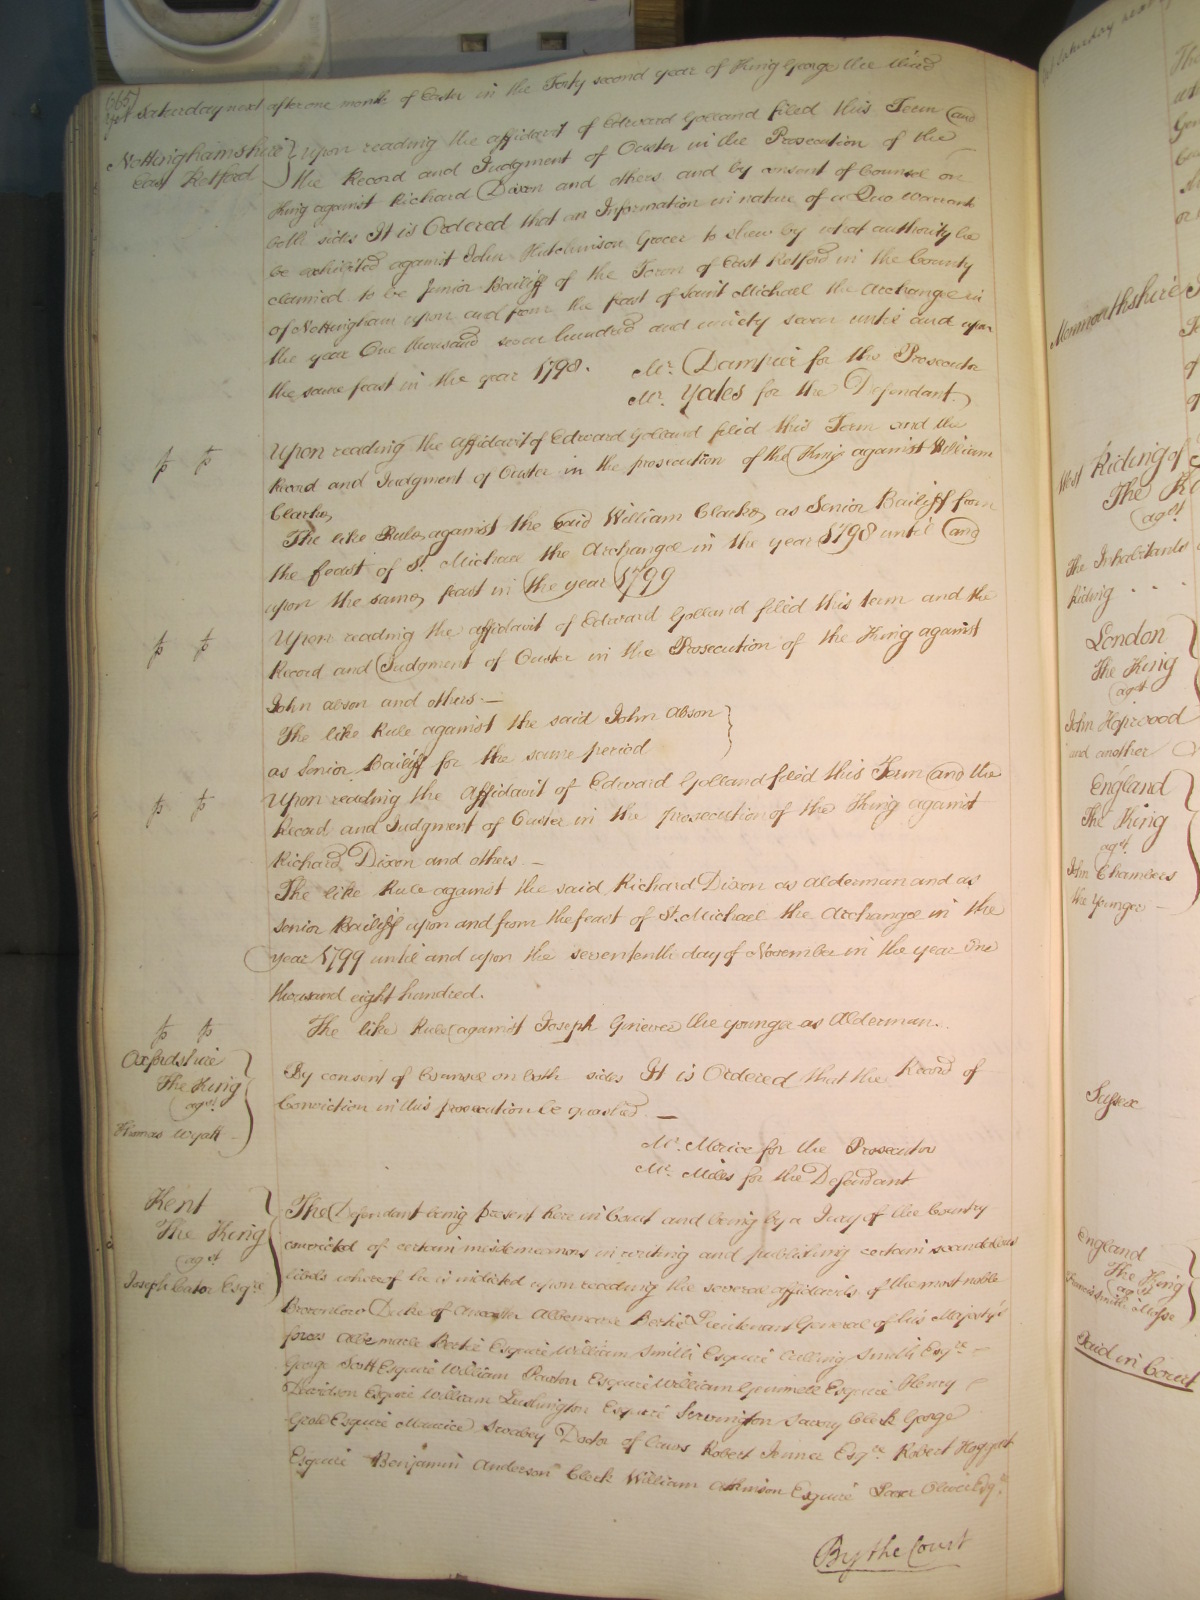 665
Yet Saturday next after one month of Easter in the Forty second year of King George the third
Nottinghamshire
East Retford
Upon reading the affidavit of Edward Golland filed this Term and
the Record and Judgment of Ouster in the Prosecution of the
King against Richard Dixon and others and by consent of Counsel on
both sides It is Ordered that an Information in nature of a Quo warranto
be exhibited against John Hutchinson Grocer to shew by what authority he
claimed to be Junior Bailiff of the Town of East Retford in the County
of Nottingham upon and from the feast of Saint Michael the Archangel in
the year One thousand seven hundred and ninety seven until and upon
the same feast in the year 1798.
Mr. Dampier for the Prosecutor
Mr. Yates for the Defendant
Upon reading the affidavit of Edward Golland filed this Term and the
Record and Judgment of Ouster in the prosecution of the King against William
Clarke
The like Rule against the said William Clarke as Senior Bailiff from
the feast of St. Michael the Archangel in the year 1798 until and
upon the same feast in the year 1799
Upon reading the affidavit of Edward Golland filed this term and the
Record and Judgment of Ouster in the Prosecution of the King against
John Abson and others —
The like Rule against the said John Abson
as Senior Bailiff for the same period
Upon reading the Affidavit of Edward Golland filed this Term and the
Record and Judgment of Ouster in the prosecution of the King against
Richard Dixon and others —
The like Rule against the said Richard Dixon as Alderman and as
Senior Bailiff upon and from the feast of St. Michael the Archangel in the
year 1799 until and upon the seventeenth day of November in the year One
thousand eight hundred.
The like Rule against Joseph Grieves the younger as Alderman.
Oxfordshire
The King
agst
Thomas Wyatt
By consent of Counsel on both sides It is Ordered that the Record of
Conviction in this prosecution be quashed —
Mr. for the Prosecutor
Mr. Miles for the Defendant
Kent
The King
agst
Joseph Cator Esqre
The Defendant being present here in Court and being by a Jury of the Country
convicted of certain misdemeanors in writing and publishing certain scandalous
libels whereof he is indicted upon reading the several affidavits of the most noble
Brownlow Duke of Ancaster Albemarle Bertie Lieutenant General of his Majesty's
forces Albemarle Bertie Esquire William Smith Esquire Culling Smith Esqre
George Scott Esquire William Esquire William Esquire Henry
Davidson Esquire William Lushington Esquire Servington Savery Clerk George
Grote Esquire Maurice Swabey Doctor of Laws Robert Jenner Esqre Robert
Esquire Benjamin Anderson Clerk William Atkinson Esquire Oliver Esqre
By the Court
Monmouthshire
West Riding of
The
agst
The Inhabitants
Riding
London
The King
agst
John Hopwood
and another
England
The King
agst
John Chambers
the younger
Sussex
England
The King
agst
Said in Court